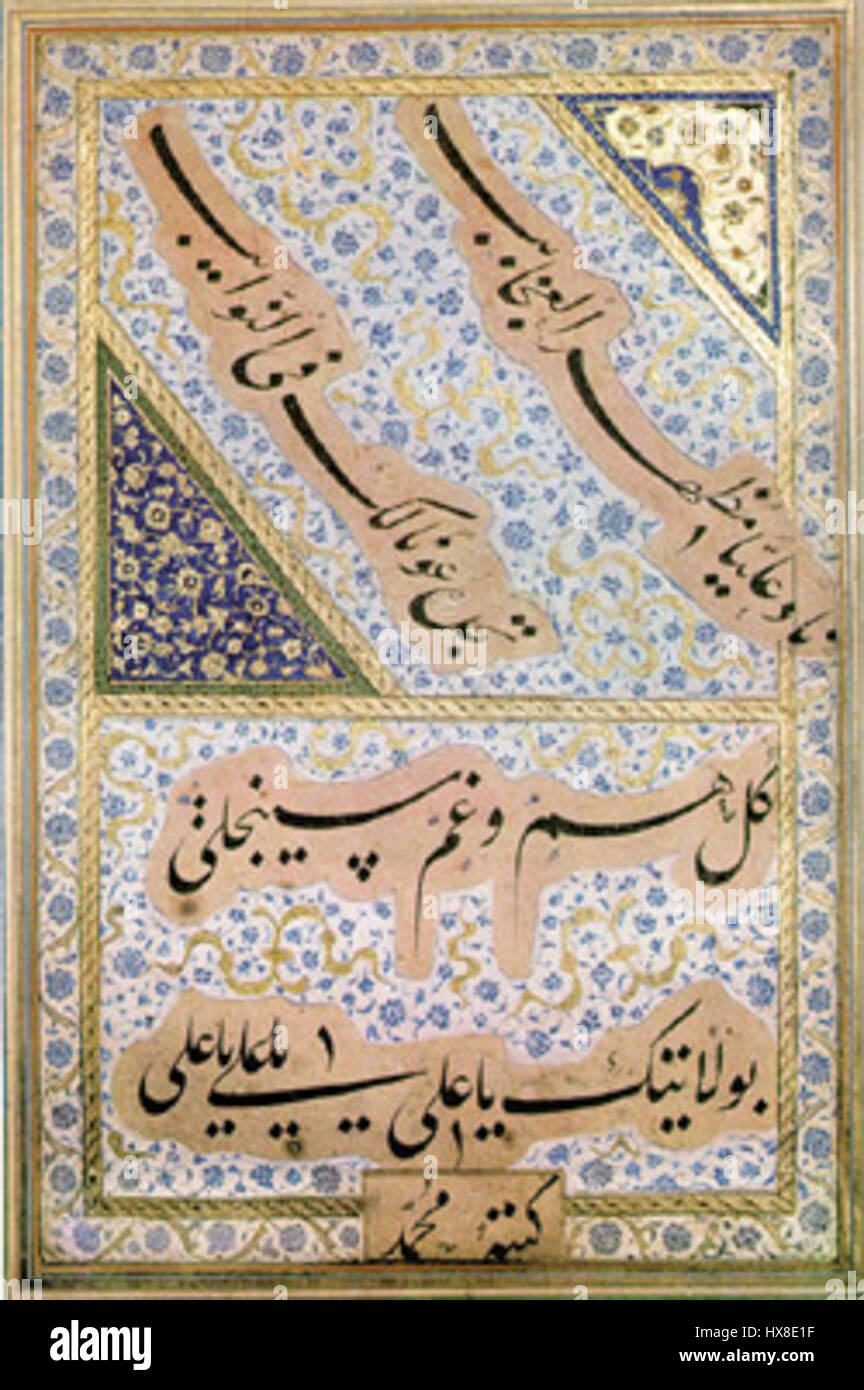 ناد علیا مظهر العجایب
تجده عونا لک فی النوایب
کل هم و غم سینجلی
بولایتک یا علی یا علی یا علی
کتبه محمد
alamy stock photo
Image ID: HX8E1F
www.alamy.com